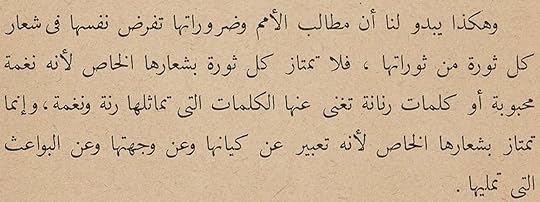 وهكذا يبدو لنا أن مطالب الأمم وضروراتها تفرض نفسها فى شعار
كل ثورة من ثوراتها ، فلا تمتاز كل ثورة بشعارها الخاص لأنه نغمة
محبوبة أو كلمات رنانة تغنى عنها الكلمات التى تماثلها رنة ونغمة ، وإنما
تمتاز بشعارها الخاص لأنه تعبير عن كيانها وعن وجهتها وعن البواعث
التى تمليها .